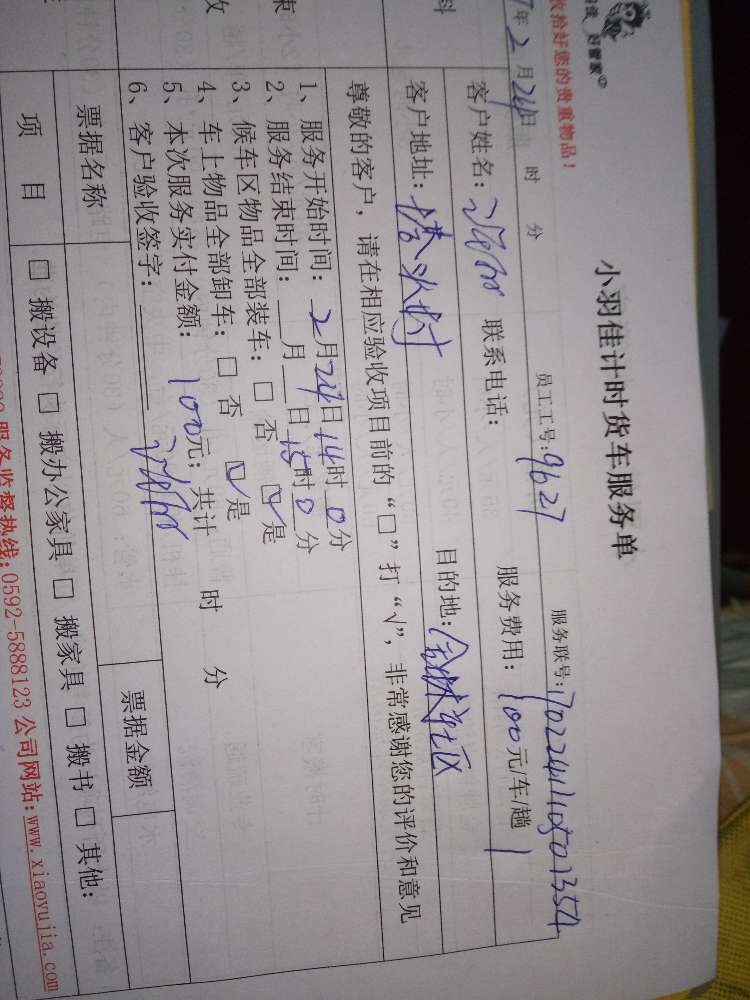 好管家
收拾好您的贵重物品！
小羽佳计时货车服务单
年2月24日 时 分 员工工号：9627 服务联号：
客户姓名： 联系电话： 服务费用：100元/车/趟
客户地址： 目的地：
尊敬的客户，请在相应验收项目前的“□”打“√”，非常感谢您的评价和意见
1、服务开始时间：2月24日14时0分
2、服务结束时间：__月__日15时0分
3、候车区物品全部装车：□ 否 ☑是
4、车上物品全部卸车：□ 否 ☑是
5、本次服务实付金额：100元；共计 时 分
6、客户验收签字：
票据名称 票据金额
项 目 □ 搬设备 □ 搬办公家具 □ 搬家具 □ 搬书 □ 其他：
服务监督热线：0592-5888123 公司网站：www.xiaoyujia.com